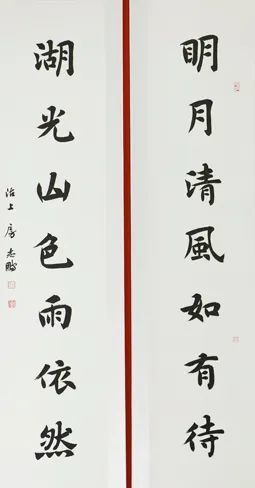 明月清風如有待
湖光山色雨依然
上房志鵬